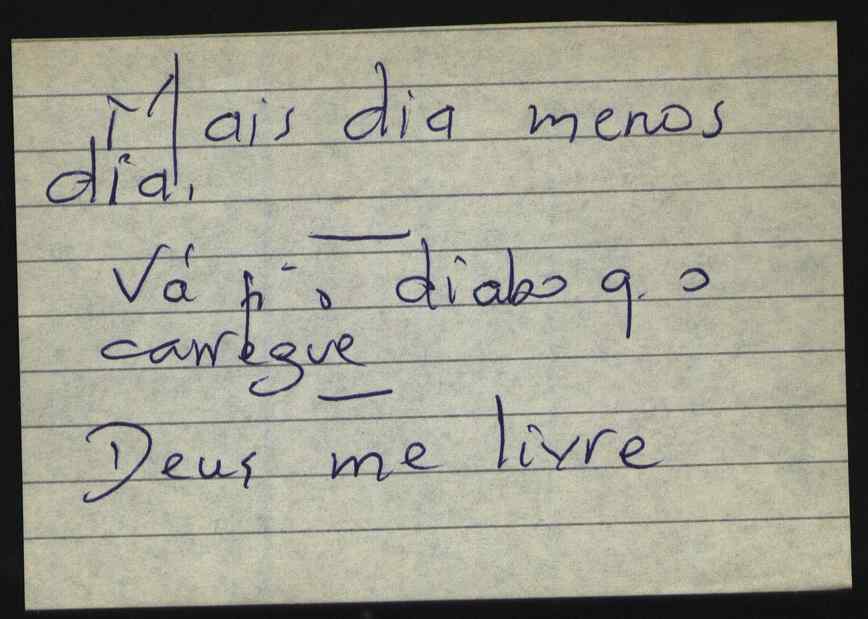 Mais dia menos
dia.
Vá p'o diabo q. o
carregue
Deus me livre